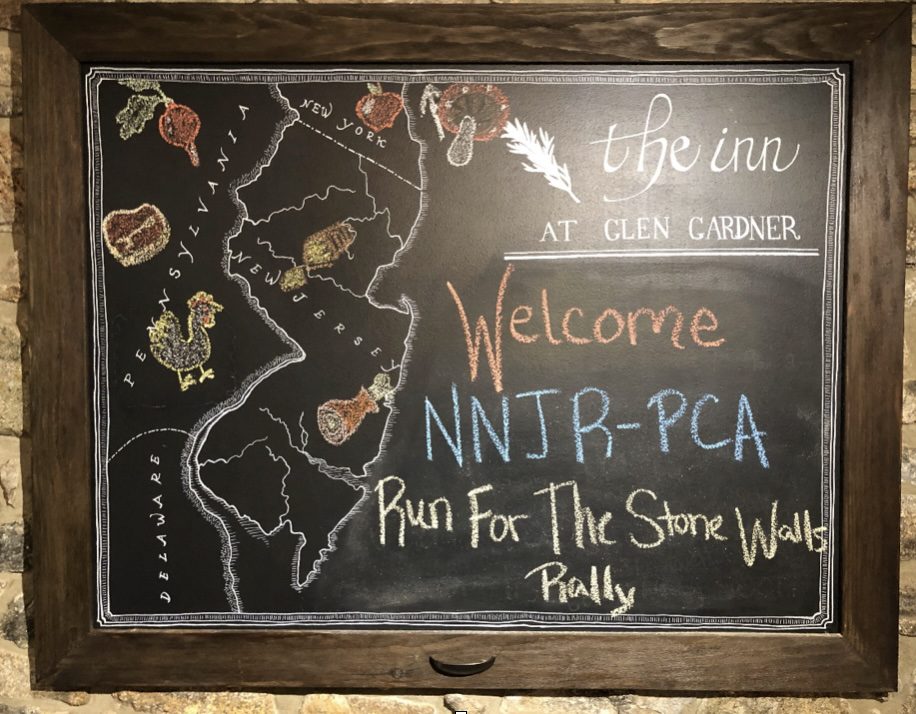 NEW YORK
PENNSYLVANIA
NEW JERSEY
DELAWARE
the inn
AT GLEN GARDNER
Welcome
NNJR-PCA
Run For The Stone Walls
Rally